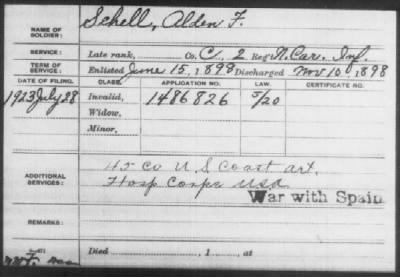 NAME OF SOLDIER: Schell, Alden F.
SERVICE: Late rank, Co. C, 2 Reg't N. Car. Inf.
TERM OF SERVICE: Enlisted June 15, 1898 Discharged Nov 10, 1898
DATE OF FILING. CLASS. APPLICATION NO. LAW. CERTIFICATE NO.
1923 July 28 Invalid, 1486826 5/20
Widow,
Minor,
ADDITIONAL SERVICES: 45 Co U S Coast Art.
Hosp Corps USA
War with Spain
REMARKS:
Died , 1 , at